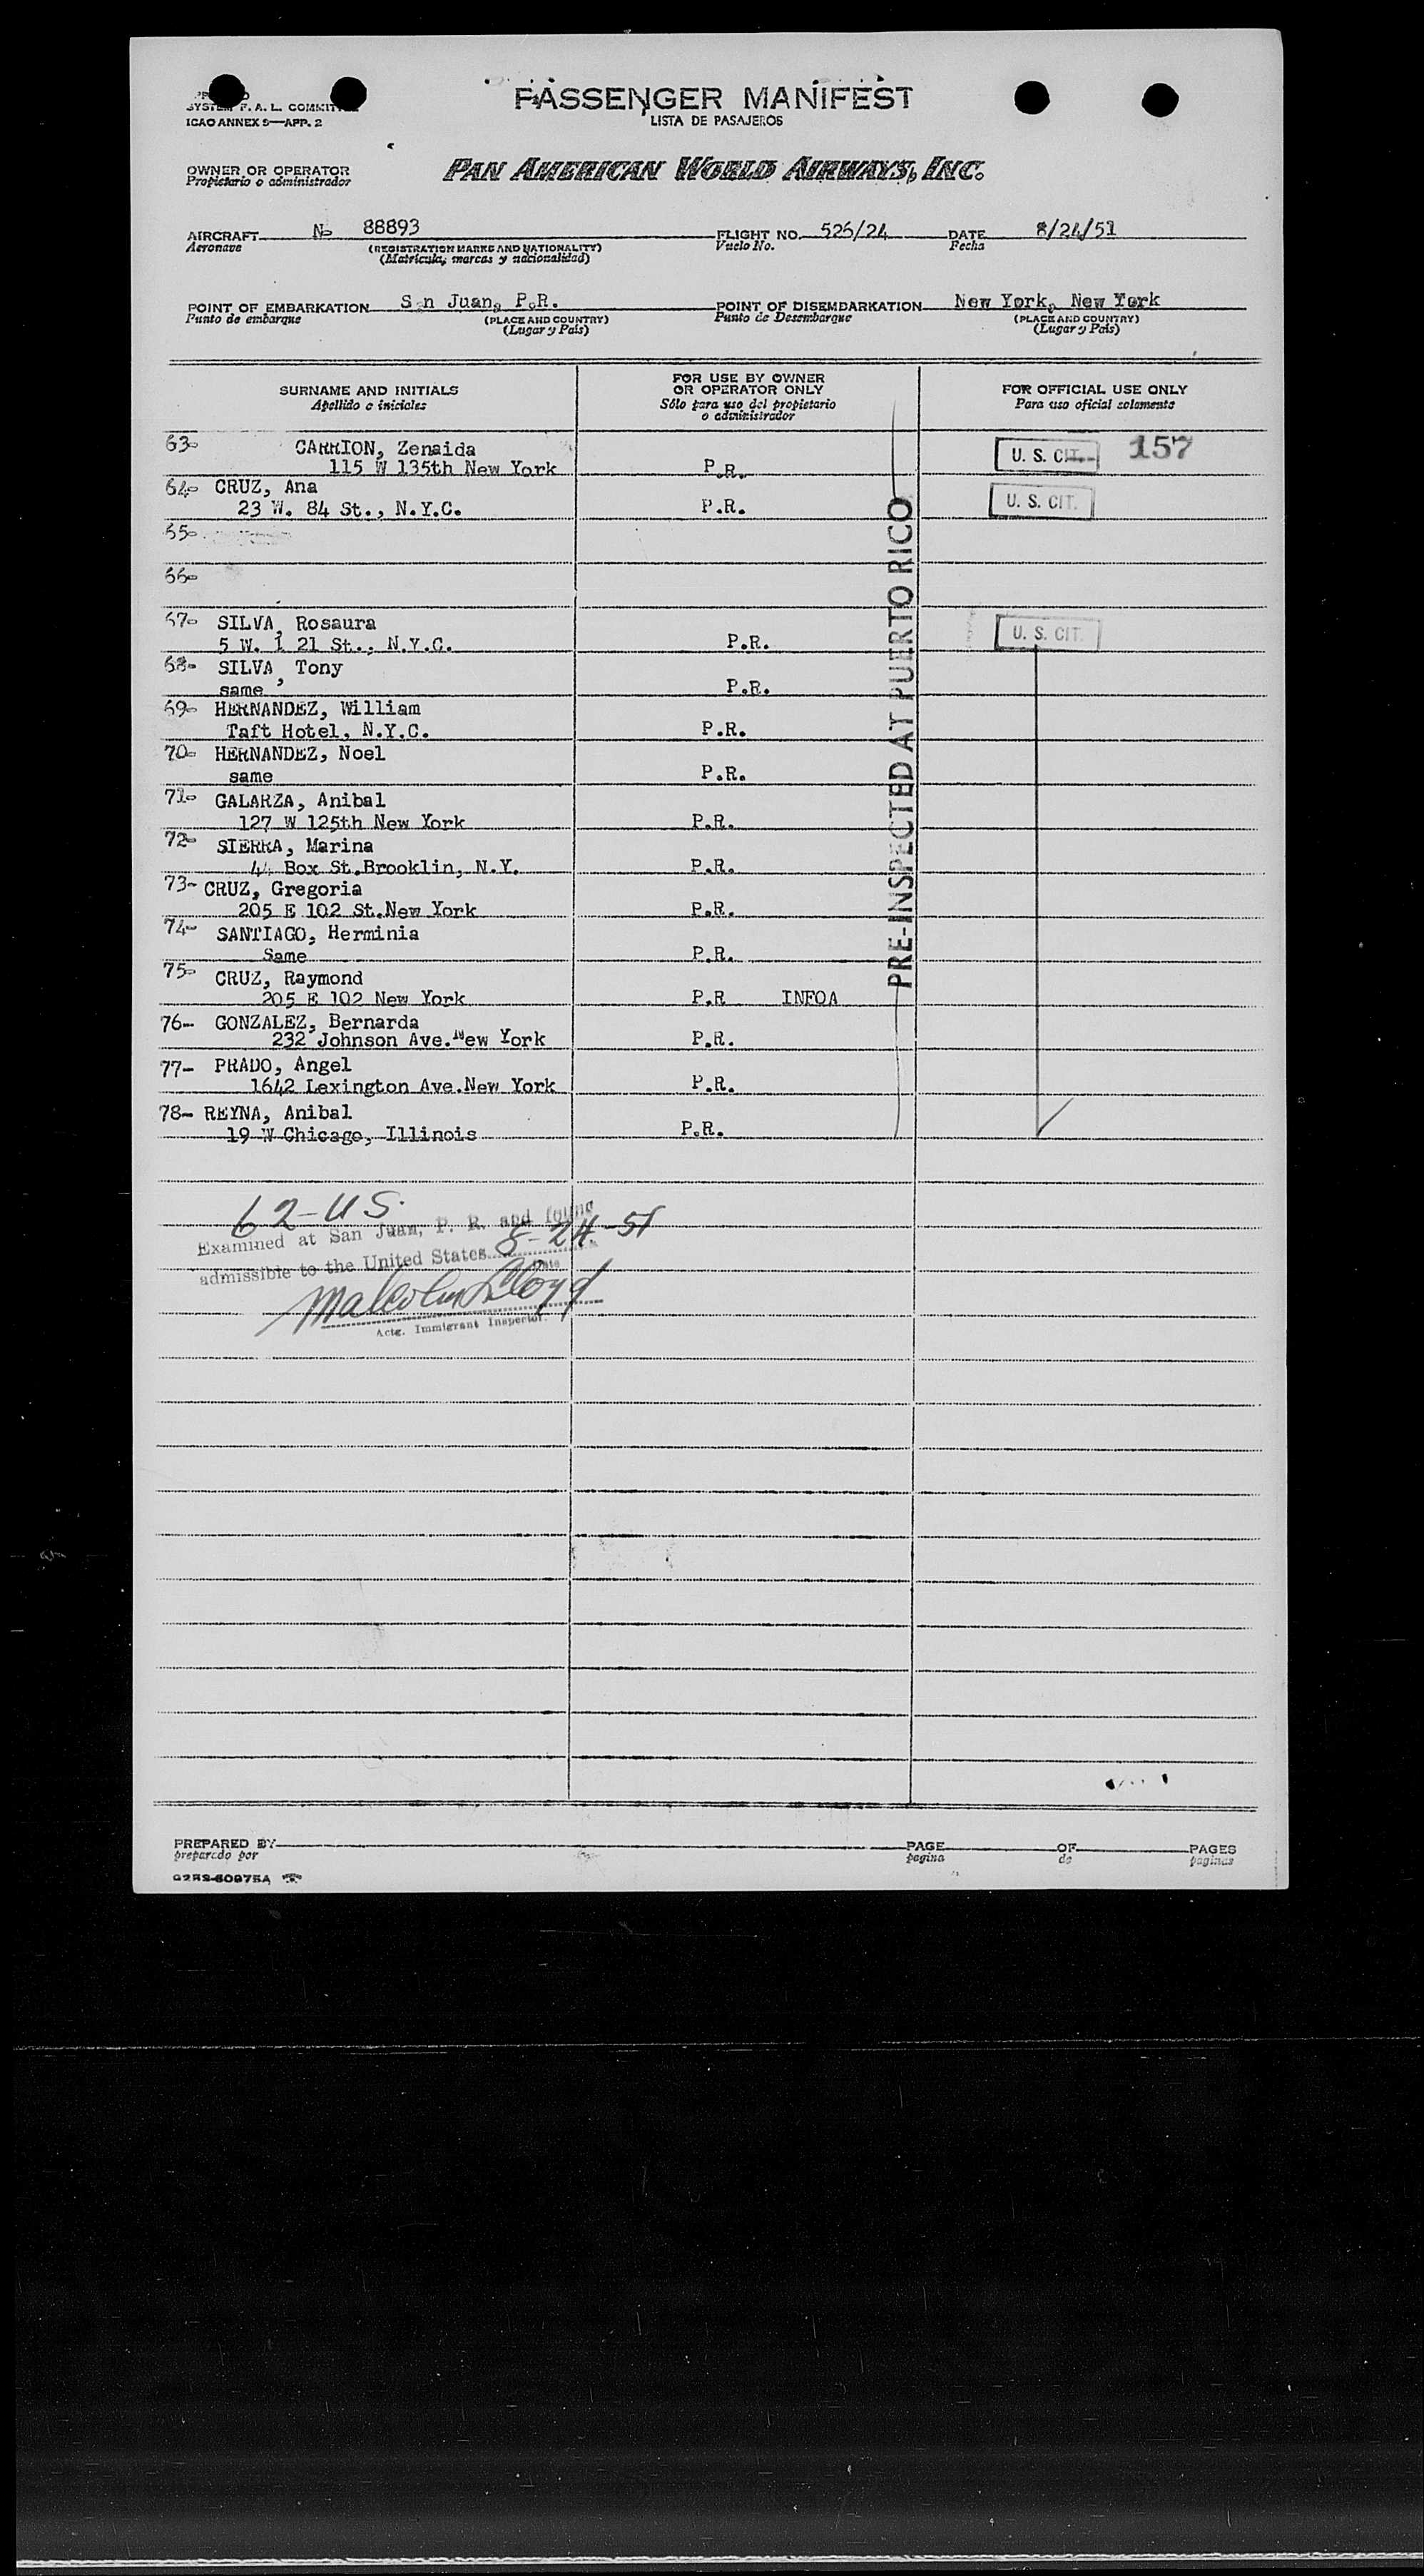 SYSTEM F. A. L. COMMITTEE
ICAO ANNEX 9—APP. 2
PASSENGER MANIFEST
LISTA DE PASAJEROS
OWNER OR OPERATOR
Propietario o administrador
PAN AMERICAN WORLD AIRWAYS, INC.
AIRCRAFT No 88893 FLIGHT NO. 526/24 DATE 8/24/51
Aeronave (REGISTRATION MARKS AND NATIONALITY) Vuelo No. Fecha
(Matricula, marcas y nacionalidad)
POINT OF EMBARKATION San Juan, P.R. POINT OF DISEMBARKATION New York, New York
Punto de embarque (PLACE AND COUNTRY) Punto de Desembarque (PLACE AND COUNTRY)
(Lugar y País) (Lugar y País)
SURNAME AND INITIALS
Apellido e iniciales
FOR USE BY OWNER
OR OPERATOR ONLY
Sólo para uso del propietario
o administrador
FOR OFFICIAL USE ONLY
Para uso oficial solamente
63- CARRION, Zenaida U. S. CIT. 157
115 W 135th New York P.R.
64- CRUZ, Ana U. S. CIT.
23 W. 84 St., N.Y.C. P.R.
65-
66-
67- SILVA, Rosaura U. S. CIT.
5 W. 1 21 St., N.Y.C. P.R.
68- SILVA, Tony
same P.R.
69- HERNANDEZ, William
Taft Hotel, N.Y.C. P.R.
70- HERNANDEZ, Noel
same P.R.
71- GALARZA, Anibal
127 W 125th New York P.R.
72- SIERRA, Marina
44 Box St.Brooklin, N.Y. P.R.
73- CRUZ, Gregoria
205 E 102 St.New York P.R.
74- SANTIAGO, Herminia
Same P.R.
75- CRUZ, Raymond
205 E 102 New York P.R INFOA
76- GONZALEZ, Bernarda
232 Johnson Ave.New York P.R.
77- PRADO, Angel
1642 Lexington Ave.New York P.R.
78- REYNA, Anibal
19 W Chicago, Illinois P.R.
PRE-INSPECTED AT PUERTO RICO
62-US.
Examined at San Juan, P. R. and found
admissible to the United States 8-24-51
Date
Malcolm Lloyd
Actg. Immigrant Inspector.
PREPARED BY PAGE OF PAGES
preparado por pagina de paginas